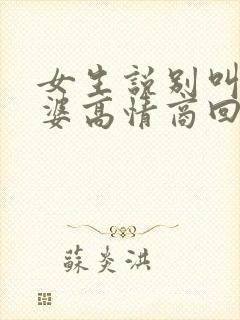 女生說別叫
婆高情商回
蘇炎洪